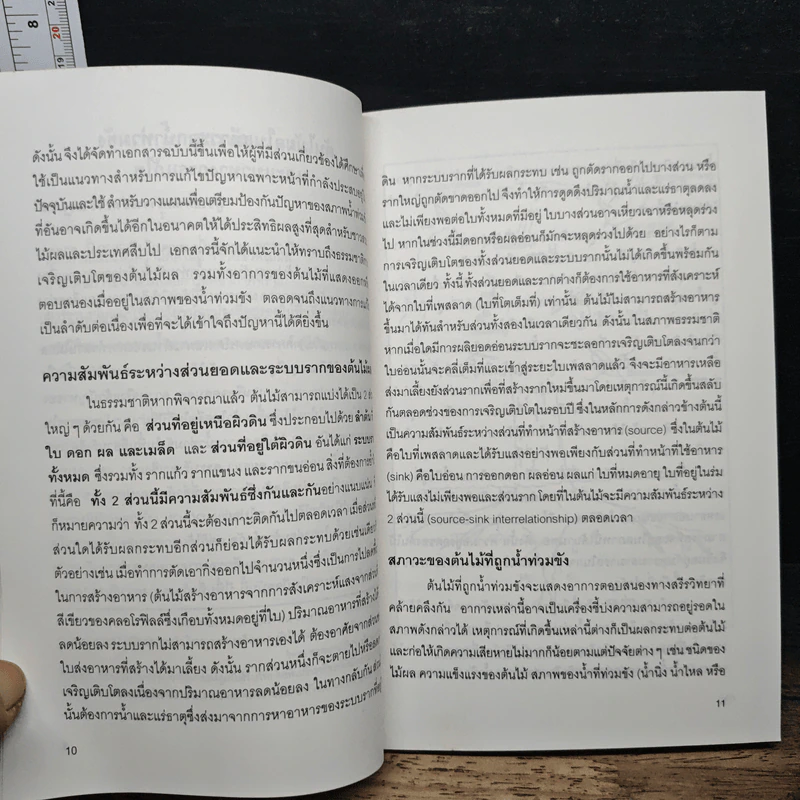 8
20
19
ดังนั้น จึงได้จัดทำเอกสารฉบับนี้ขึ้นเพื่อให้ผู้ที่มีส่วนเกี่ยวข้องได้ศึกษา
ใช้เป็นแนวทางสำหรับการแก้ไขปัญหาเฉพาะหน้าที่กำลังประสบอยู่
ปัจจุบันและใช้ สำหรับวางแผนเพื่อเตรียมป้องกันปัญหาของสภาพน้ำท่วม
ที่อันอาจเกิดขึ้นได้อีกในอนาคตให้ได้ประสิทธิผลสูงที่สุดสำหรับ
ไม้ผลและประเทศสืบไป เอกสารนี้จักได้แนะนำให้ทราบถึงธรรมชาติ
เจริญเติบโตของต้นไม้ผล รวมทั้งอาการของต้นไม้ที่แสดงออก
ตอบสนองเมื่ออยู่ในสภาพของน้ำท่วมขัง ตลอดจนถึงแนวทางการ
เป็นลำดับต่อเนื่องเพื่อที่จะได้เข้าใจถึงปัญหานี้ได้ดียิ่งขึ้น
ความสัมพันธ์ระหว่างส่วนยอดและระบบรากของต้นไม้
ในธรรมชาติหากพิจารณาแล้ว ต้นไม้สามารถแบ่งได้เป็น 2
ใหญ่ ๆ ด้วยกัน คือ ส่วนที่อยู่เหนือผิวดิน ซึ่งประกอบไปด้วย ลำต้น
ใบ ดอก ผล และเมล็ด และ ส่วนที่อยู่ใต้ผิวดิน อันได้แก่ ระบบราก
ทั้งหมด ซึ่งรวมทั้ง รากแก้ว รากแขนง และรากขนอ่อน สิ่งที่ต้องการ
ที่นี้คือ ทั้ง 2 ส่วนนี้มีความสัมพันธ์ซึ่งกันและกันอย่างแนบแน่น
ก็หมายความว่า ทั้ง 2 ส่วนนี้จะต้องเกาะติดกันไปตลอดเวลา เมื่อส่วน
ส่วนใดได้รับผลกระทบอีกส่วนก็ย่อมได้รับผลกระทบด้วยเช่น
ตัวอย่างเช่น เมื่อทำการตัดเอากิ่งออกไปจำนวนหนึ่งซึ่งเป็นการไปลด
ในการสร้างอาหาร (ต้นไม้สร้างอาหารจากการสังเคราะห์แสงจากส่วน
สีเขียวของคลอโรฟิลล์ซึ่งเกือบทั้งหมดอยู่ที่ใบ) ปริมาณอาหารที่สร้างได้
ลดน้อยลง ระบบรากไม่สามารถสร้างอาหารเองได้ ต้องอาศัยจากส่วน
ใบส่งอาหารที่สร้างได้มาเลี้ยง ดังนั้น รากส่วนหนึ่งก็จะตายไปหรือ
เจริญเติบโตลงเนื่องจากปริมาณอาหารลดน้อยลง ในทางกลับกัน
นั้นต้องการน้ำและแร่ธาตุซึ่งส่งมาจากการหาอาหารของระบบราก
10
ดิน หากระบบรากที่ได้รับผลกระทบ เช่น ถูกตัดรากออกไปบางส่วน หรือ
รากใหญ่ถูกตัดขาดออกไป จึงทำให้การดูดดึงปริมาณน้ำและแร่ธาตุลดลง
และไม่เพียงพอต่อใบทั้งหมดที่มีอยู่ ใบบางส่วนอาจเหี่ยวเฉาหรือหลุดร่วง
ไป หากในช่วงนี้มีดอกหรือผลอ่อนก็มักจะหลุดร่วงไปด้วย อย่างไรก็ตาม
การเจริญเติบโตของทั้งส่วนยอดและระบบรากนั้นไม่ได้เกิดขึ้นพร้อมกัน
ในเวลาเดียว ทั้งนี้ ทั้งส่วนยอดและรากต่างก็ต้องการใช้อาหารที่สังเคราะห์
ได้จากใบที่เพสลาด (ใบที่โตเต็มที่) เท่านั้น ต้นไม้ไม่สามารถสร้างอาหาร
ขึ้นมาได้ทันสำหรับส่วนทั้งสองในเวลาเดียวกัน ดังนั้น ในสภาพธรรมชาติ
หากเมื่อใดมีการผลิยอดอ่อนระบบรากจะชะลอการเจริญเติบโตลงจนกว่า
ใบอ่อนนั้นจะคลี่เต็มที่และเข้าสู่ระยะใบเพสลาดแล้ว จึงจะมีอาหารเหลือ
ส่งมาเลี้ยงยังส่วนรากเพื่อที่สร้างรากใหม่ขึ้นมาโดยเหตุการณ์นี้เกิดขึ้นสลับ
กันตลอดช่วงของการเจริญเติบโตในรอบปี ซึ่งในหลักการดังกล่าวข้างต้นนี้
เป็นความสัมพันธ์ระหว่างส่วนที่ทำหน้าที่สร้างอาหาร (source) ซึ่งในต้นไม้
คือใบที่เพสลาดและได้รับแสงอย่างพอเพียงกับส่วนที่ทำหน้าที่ใช้อาหาร
(sink) คือใบอ่อน การออกดอก ผลอ่อน ผลแก่ ใบที่หมดอายุ ใบที่อยู่ในร่ม
ได้รับแสงไม่เพียงพอและส่วนราก โดยที่ในต้นไม้จะมีความสัมพันธ์ระหว่าง
2 ส่วนนี้ (source-sink interrelationship) ตลอดเวลา
สภาวะของต้นไม้ที่ถูกน้ำท่วมขัง
ต้นไม้ที่ถูกน้ำท่วมขังจะแสดงอาการตอบสนองทางสรีรวิทยาที่
คล้ายคลึงกัน อาการเหล่านี้อาจเป็นเครื่องชี้บ่งความสามารถอยู่รอดใน
สภาพดังกล่าวได้ เหตุการณ์ที่เกิดขึ้นเหล่านี้ต่างก็เป็นผลกระทบต่อต้นไม้
และก่อให้เกิดความเสียหายไม่มากก็น้อยตามแต่ปัจจัยต่าง ๆ เช่น ชนิดของ
ไม้ผล ความแข็งแรงของต้นไม้ สภาพของน้ำที่ท่วมขัง (น้ำนิ่ง น้ำไหล หรือ
11